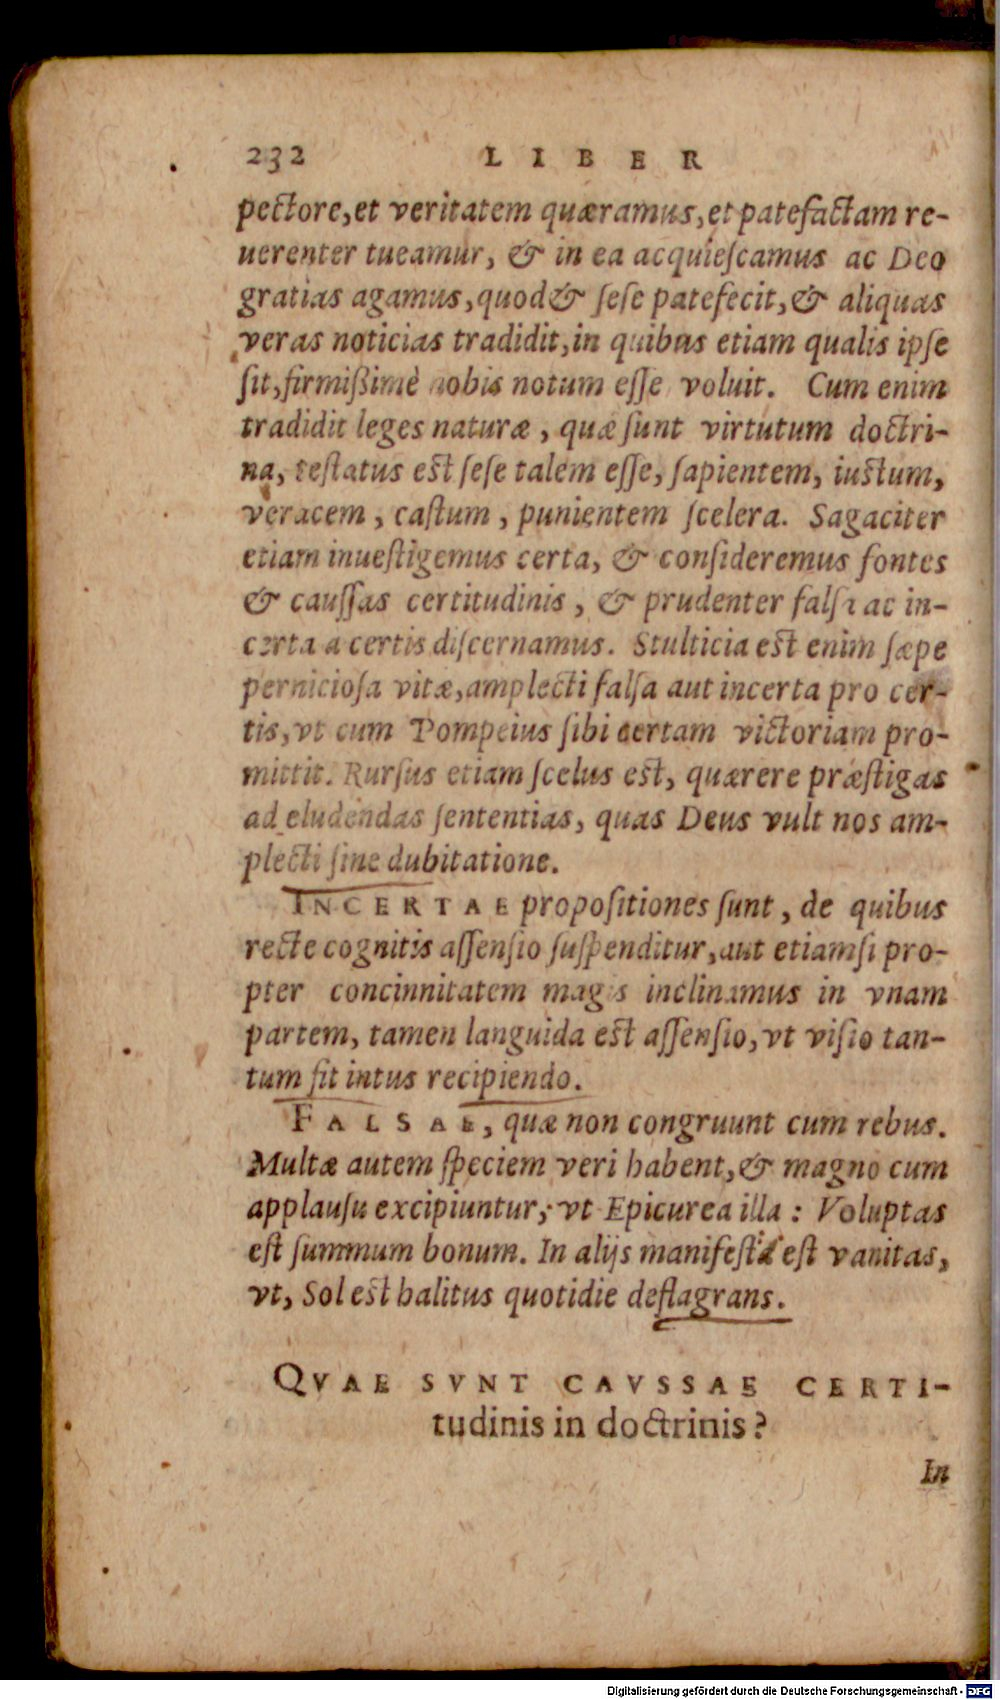 232 LIBER
pectore, et veritatem quæramus, et patefactam re-
uerenter tueamur, & in ea acquieſcamus ac Deo
gratias agamus, quod & ſeſe patefecit, & aliquas
veras noticias tradidit, in quibus etiam qualis ipſe
ſit, firmißimè nobis notum eſſe voluit. Cum enim
tradidit leges naturæ, quæ ſunt virtutum doctri-
na, teſtatus eſt ſeſe talem eſſe, ſapientem, iuſtum,
veracem, caſtum, punientem ſcelera. Sagaciter
etiam inueſtigemus certa, & conſideremus fontes
& cauſſas certitudinis, & prudenter falſa ac in-
certa a certis diſcernamus. Stulticia eſt enim ſæpe
pernicioſa vitæ, amplecti falſa aut incerta pro cer-
tis, vt cum Pompeius ſibi certam victoriam pro-
mittit. Rurſus etiam ſcelus eſt, quærere præſtigas
ad eludendas ſententias, quas Deus vult nos am-
plecti ſine dubitatione.
INCERTAE propoſitiones ſunt, de quibus
recte cognitis aſſenſio ſuſpenditur, aut etiamſi pro-
pter concinnitatem magis inclinamus in vnam
partem, tamen languida eſt aſſenſio, vt viſio tan-
tum fit intus recipiendo.
FALSAE, quæ non congruunt cum rebus.
Multæ autem ſpeciem veri habent, & magno cum
applauſu excipiuntur, vt Epicurea illa: Voluptas
eſt ſummum bonum. In alijs manifeſta eſt vanitas,
vt, Sol eſt halitus quotidie deflagrans.
QVAE SVNT CAVSSAE CERTI-
tudinis in doctrinis?
In
Digitalisierung gefördert durch die Deutsche Forschungsgemeinschaft - DFG